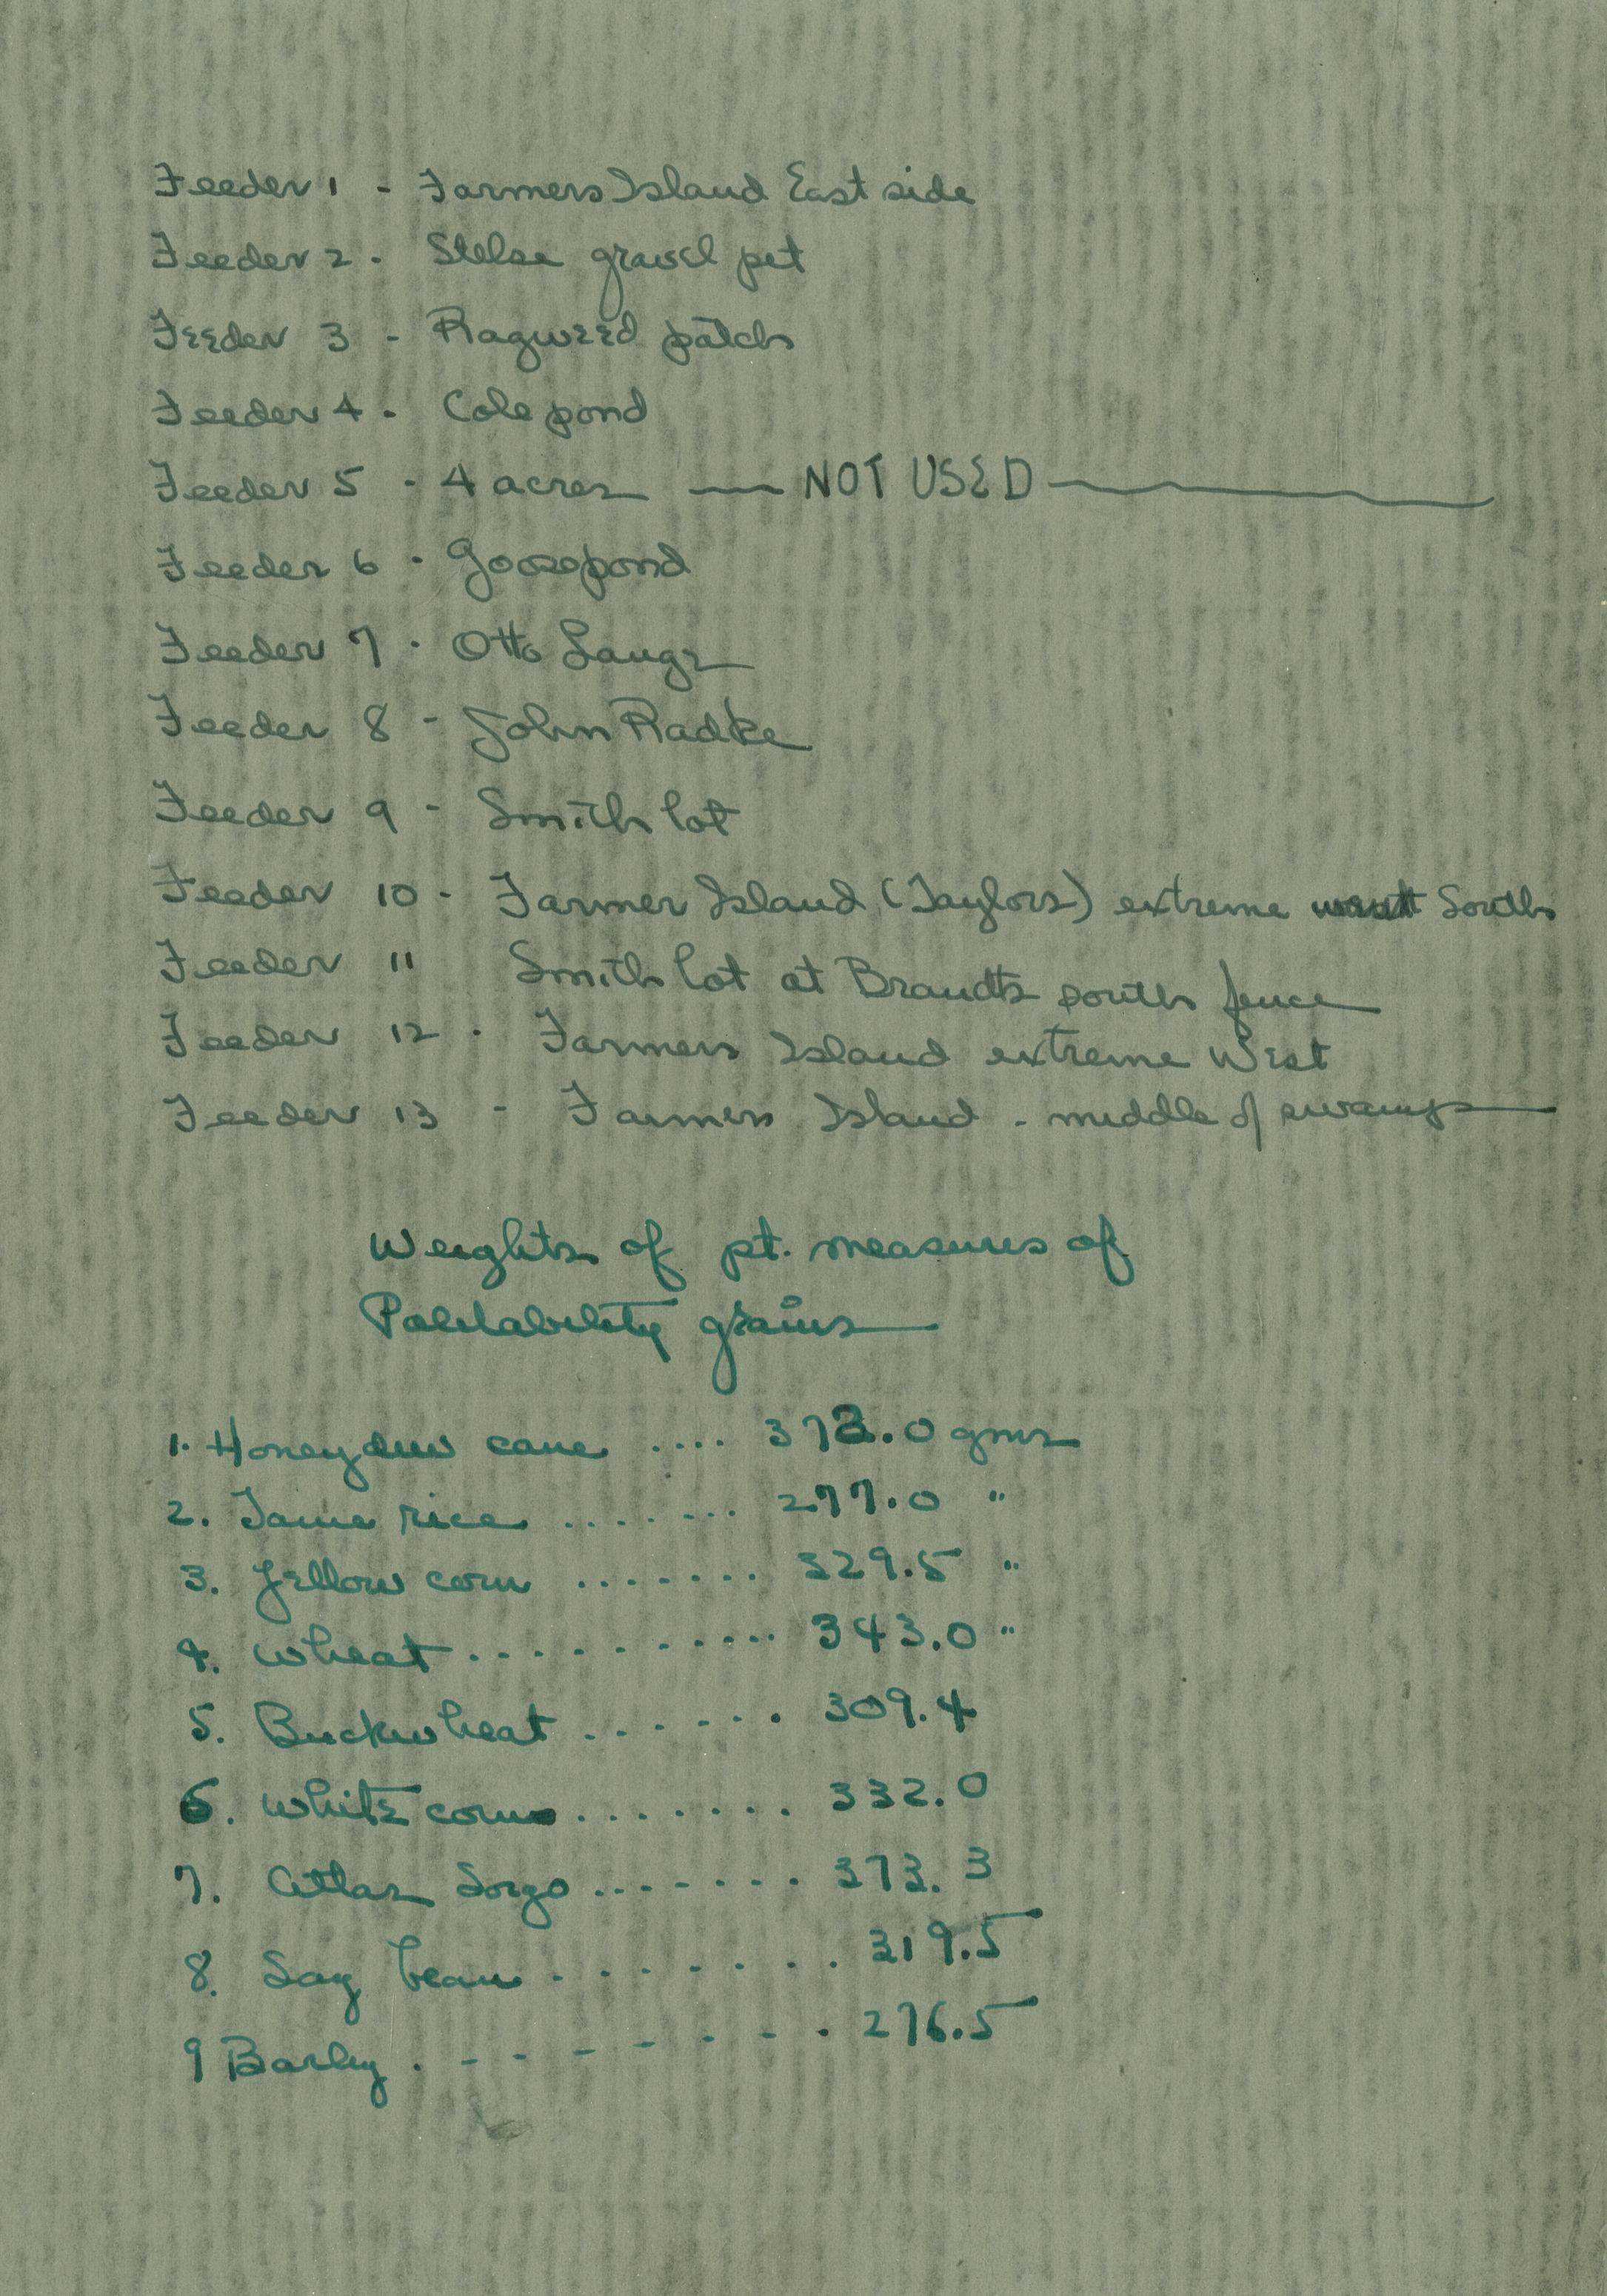 Feeder 1 - Farmers Island East side
Feeder 2 - gravel pit
Feeder 3 - Ragweed patch
Feeder 4 - Cole pond
Feeder 5 - 4 acres — NOT USED —
Feeder 6 - Goosepond
Feeder 7 - Otto Lange
Feeder 8 - John Radke
Feeder 9 - Smith lot
Feeder 10 - Farmer Island (Taylors) extreme South
Feeder 11 Smith lot at Brandts south fence
Feeder 12 - Farmers Island extreme West
Feeder 13 - Farmers Island - middle of swamp
Weights of pt. measures of
Palatability grains
1. Honeydew cane .... 373.0 gms
2. Tame rice ........ 277.0 "
3. Yellow corn ....... 329.5 "
4. Wheat ........... 343.0 "
5. Buckwheat ....... 309.4
6. White corn ........ 332.0
7. Atlas Sorgo ........ 373.3
8. Soy bean ........ 319.5
9 Barley . - - - - - - - . 276.5